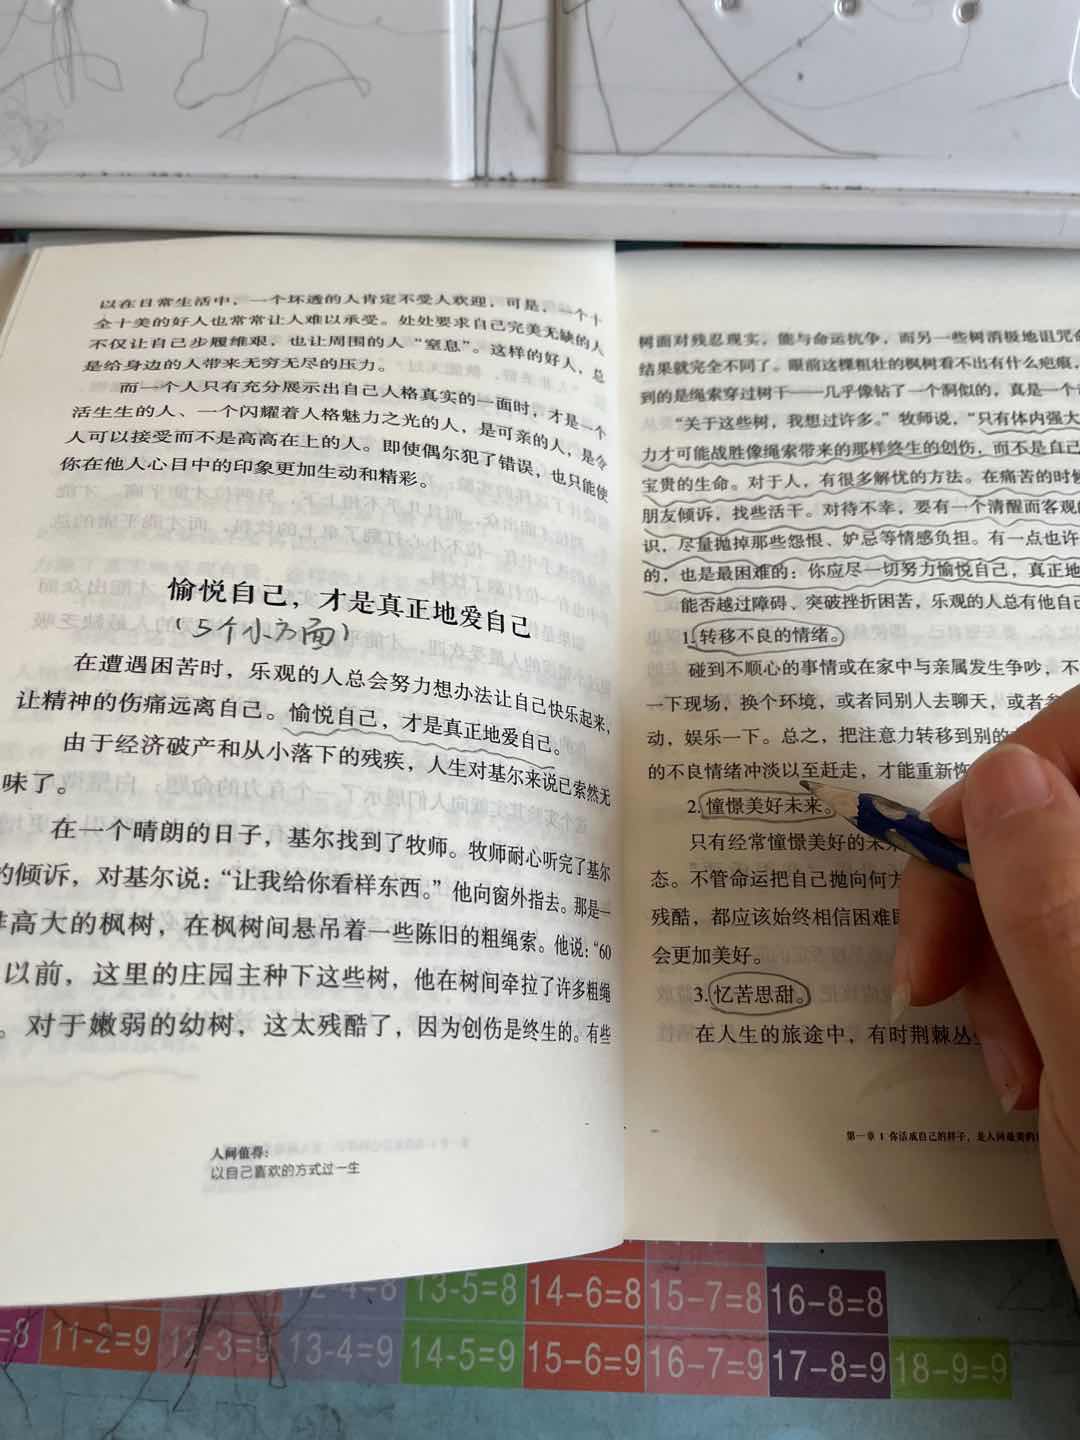 以在日常生活中，一个坏透的人肯定不受人欢迎，可是，一个十
全十美的好人也常常让人难以承受。处处要求自己完美无缺的人
不仅让自己步履维艰，也让周围的人“窒息”。这样的好人，总
是给身边的人带来无穷无尽的压力。
而一个人只有充分展示出自己人格真实的一面时，才是一个
活生生的人、一个闪耀着人格魅力之光的人，是可亲的人，是令
人可以接受而不是高高在上的人。即使偶尔犯了错误，也只能使
你在他人心目中的印象更加生动和精彩。
愉悦自己，才是真正地爱自己
（5个小方面）
在遭遇困苦时，乐观的人总会努力想办法让自己快乐起来，
让精神的伤痛远离自己。愉悦自己，才是真正地爱自己。
由于经济破产和从小落下的残疾，人生对基尔来说已索然无
味了。
在一个晴朗的日子，基尔找到了牧师。牧师耐心听完了基尔
的倾诉，对基尔说：“让我给你看样东西。”他向窗外指去。那是一
高大的枫树，在枫树间悬吊着一些陈旧的粗绳索。他说：“60
以前，这里的庄园主种下这些树，他在树间牵拉了许多粗绳
。对于嫩弱的幼树，这太残酷了，因为创伤是终生的。有些
人间值得：
以自己喜欢的方式过一生
树面对残忍现实，能与命运抗争，而另一些树消极地诅咒命
结果就完全不同了。眼前这棵粗壮的枫树看不出有什么疤痕，
到的是绳索穿过树干——几乎像钻了一个洞似的，真是一个
“关于这些树，我想过许多。”牧师说，“只有体内强大
力才可能战胜像绳索带来的那样终生的创伤，而不是自己
宝贵的生命。对于人，有很多解忧的方法。在痛苦的时候
朋友倾诉，找些活干。对待不幸，要有一个清醒而客观的
识，尽量抛掉那些怨恨、妒忌等情感负担。有一点也许
的，也是最困难的：你应尽一切努力愉悦自己，真正地
能否越过障碍、突破挫折困苦，乐观的人总有他自己
1.转移不良的情绪。
碰到不顺心的事情或在家中与亲属发生争吵，不
一下现场，换个环境，或者同别人去聊天，或者参
动，娱乐一下。总之，把注意力转移到别的
的不良情绪冲淡以至赶走，才能重新恢
2.憧憬美好未来。
只有经常憧憬美好的未来
态。不管命运把自己抛向何方
残酷，都应该始终相信困难
会更加美好。
3.忆苦思甜。
在人生的旅途中，有时荆棘丛
第一章 1 你活成自己的样子，是人间最美的
13-5=8 14-6=8 15-7=8 16-8=8
=8 11-2=9 12-3=9 13-4=9 14-5=9 15-6=9 16-7=9 17-8=9 18-9=9